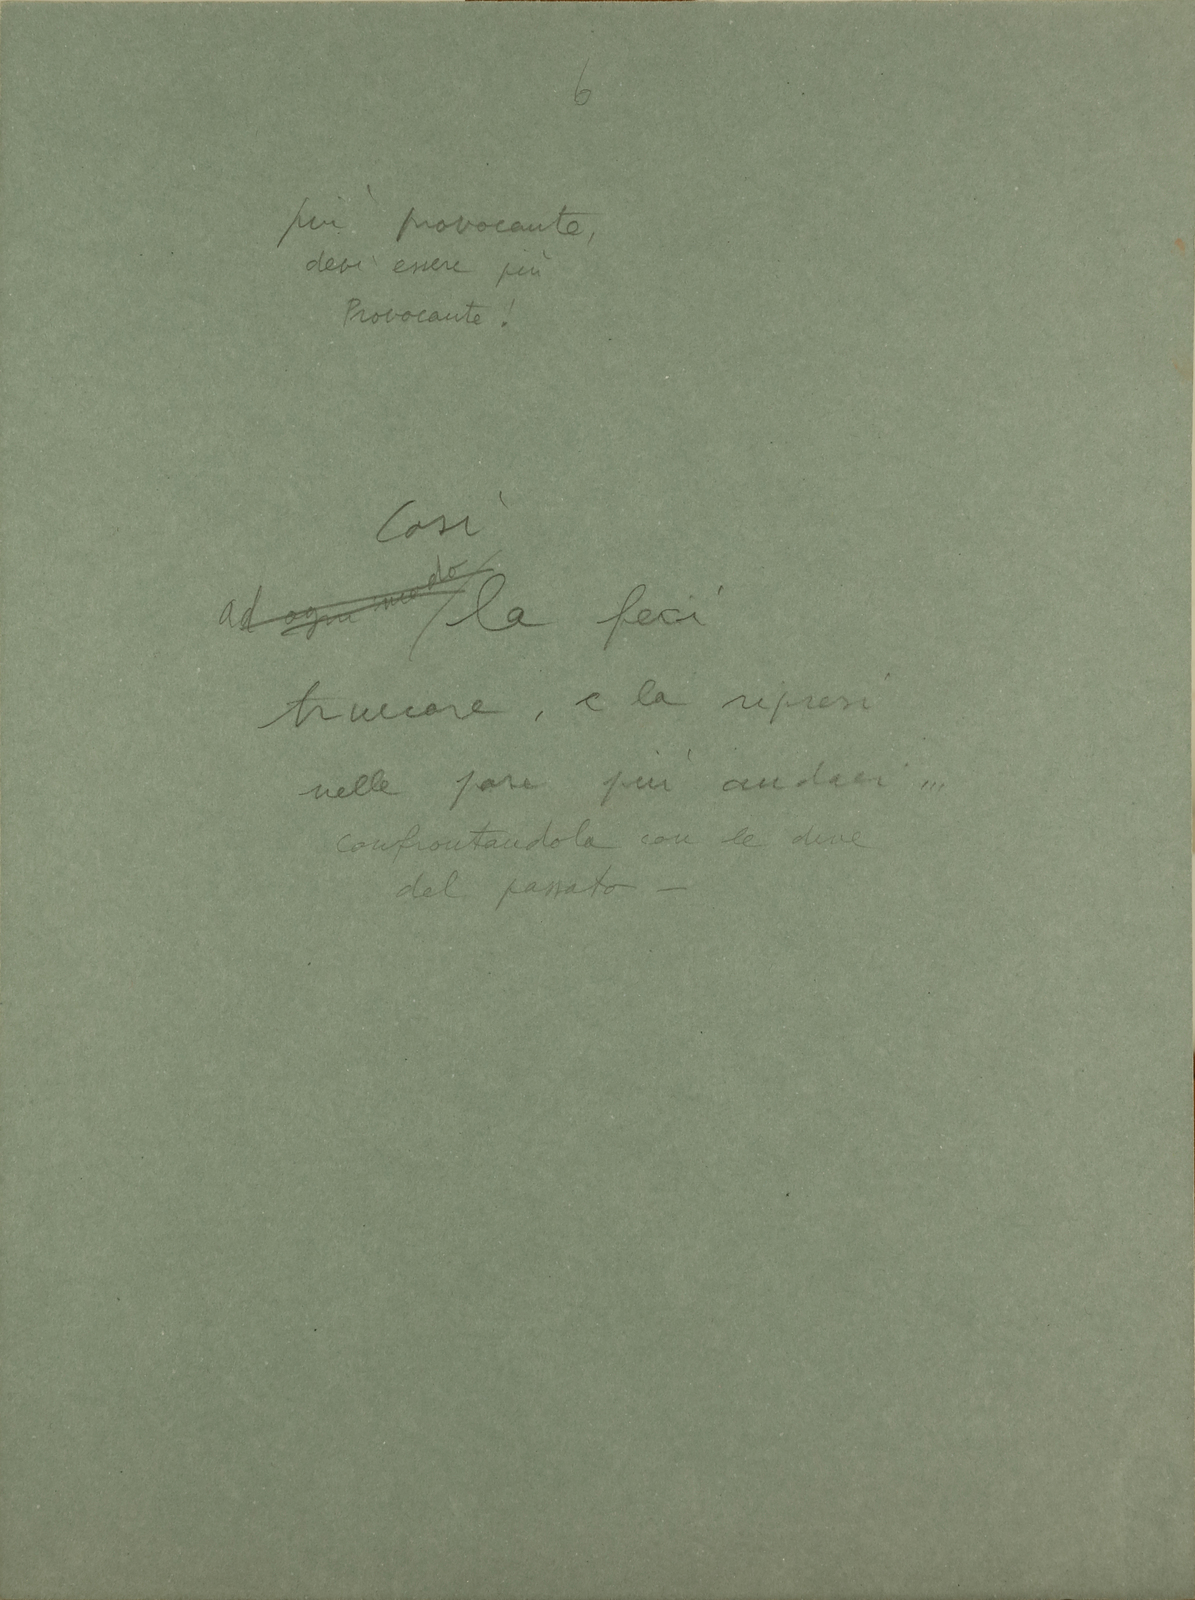 6
più provocante,
devi essere più
Provocante!
Così
ad ogni modo / la feci
truccare, e la ripresi
nelle pose più audaci ...
confrontandola con le dive
del passato —